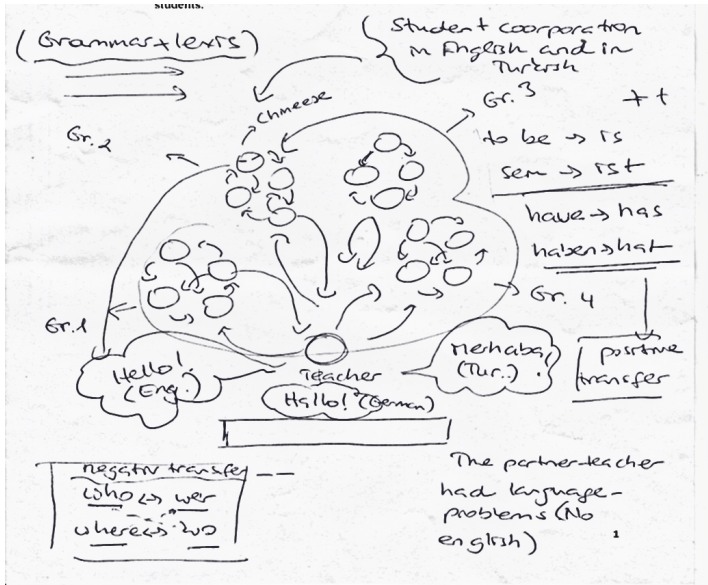 students.
(Grammar + lexis)
Student coorporation
in English and in
Turkish
Chineese
Gr. 3
+ t
Gr. 2
to be → is
sein → ist
have → has
haben → hat
Gr. 4
Gr. 1
positive
transfer
Hello!
(Eng.)
Teacher
Hallo! (German)
merhaba,
(Tur..) !
negativ transfer
who ↔ wer
where ↔ wo
The partner-teacher
had language-
problems (No
english)
1